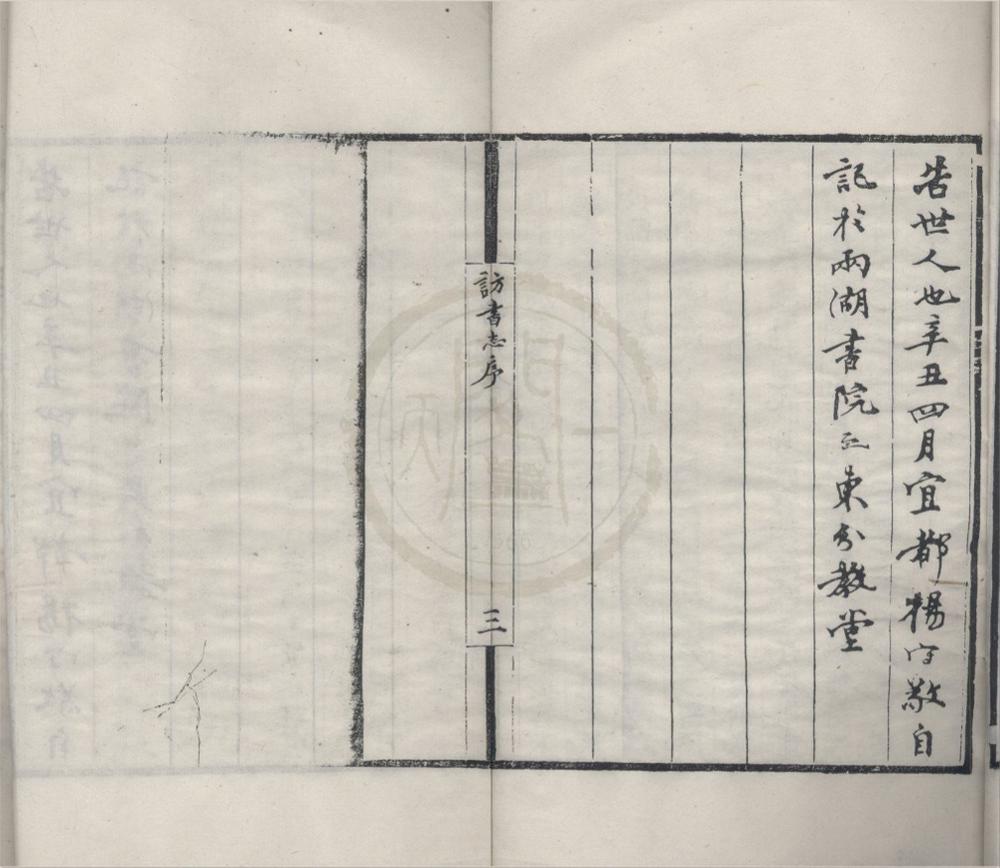 告世人也辛丑四月宜都楊守敬自
記於兩湖書院之東分教堂
訪書志序
三